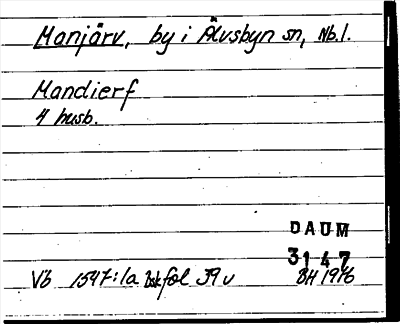 Manjärv, by i Älvsbyn sn, Nb.l.
Mandierf
4 husb.
DAUM
3147
Vb 1547:1a bsk fol 39 v BH 1976